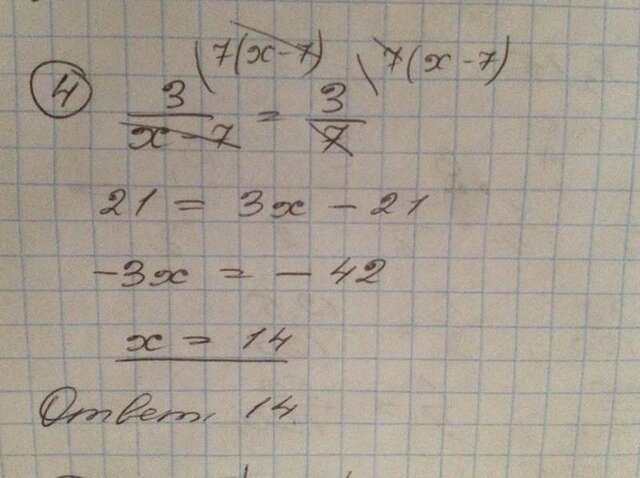 ④ 3/(x-7) \7(x-7) = 3/7 \7(x-7)
21 = 3x - 21
-3x = -42
x = 14
Ответ. 14.